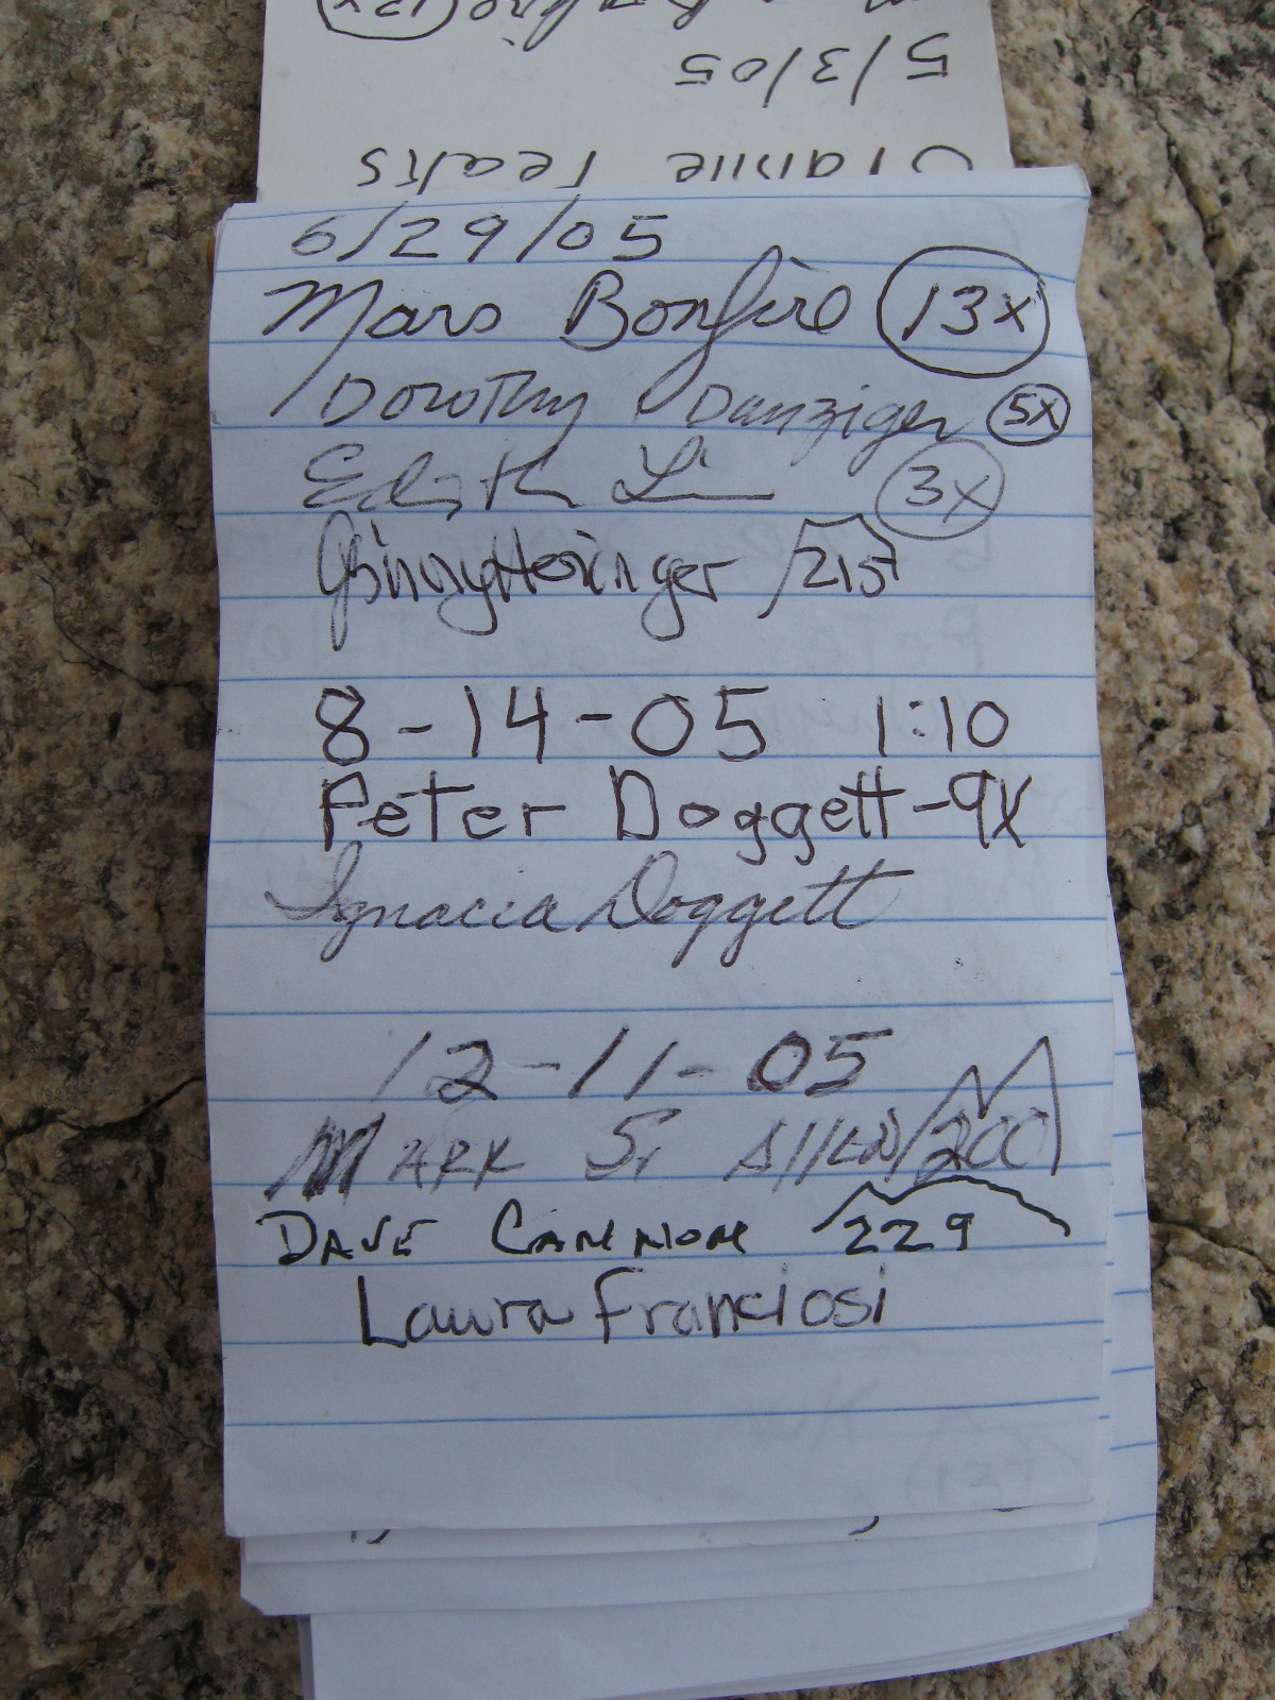 5/3/05
6/29/05
Mars Bonfire 13x
Dorothy Danziger 5x
Edith Li 3x
Ginny Heringer 215
8-14-05 1:10
Peter Doggett-9X
Ignacia Doggett
12-11-05
MARK S. Allen 200
DAVE CANNON 229
Laura Franciosi